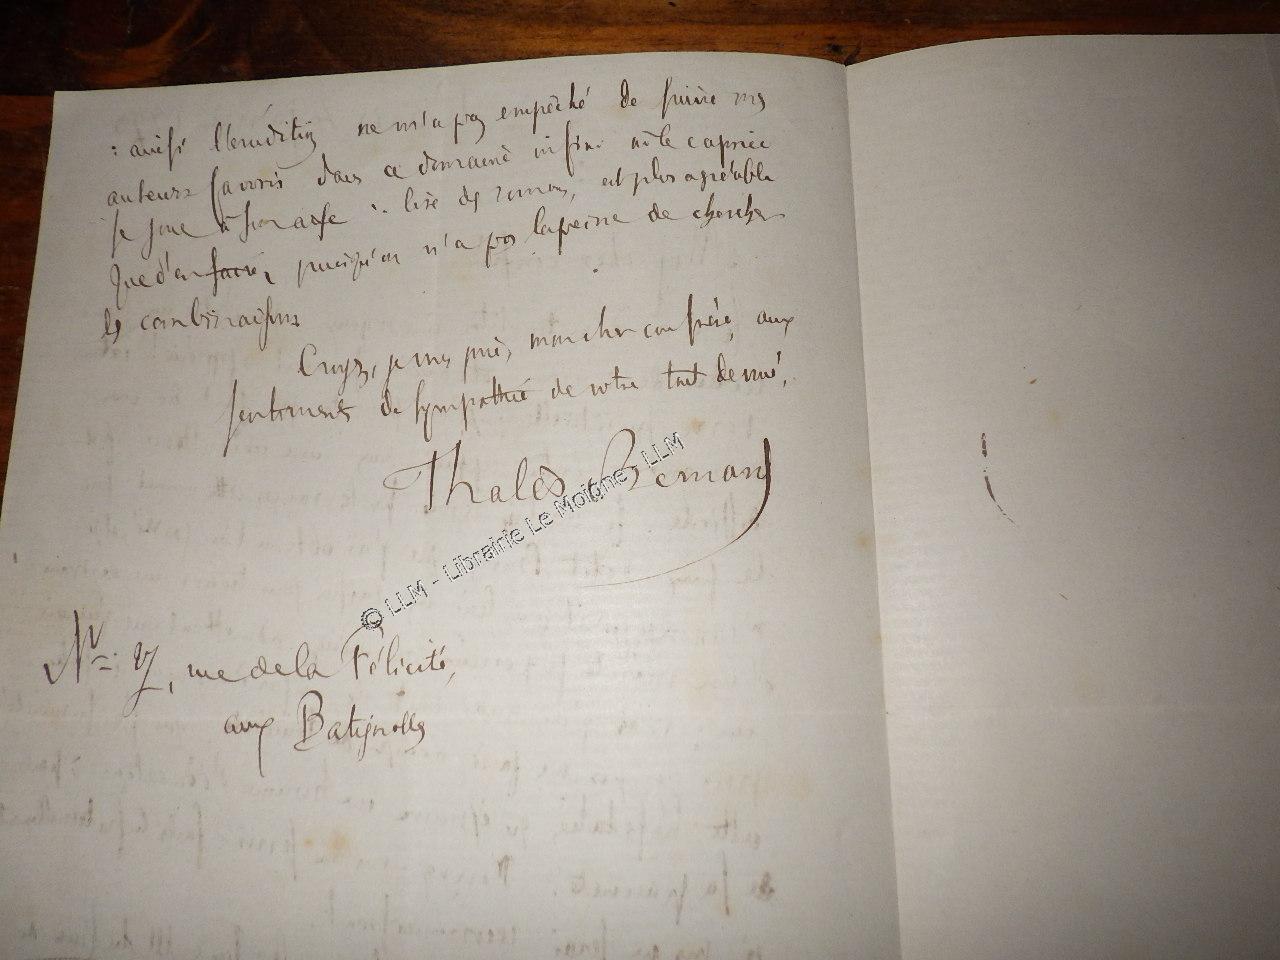 : ainsi l'érudition ne m'a pas empêché de suivre mes
auteurs favoris dans ce domaine infini où le caprice
se joue à son aise : lire des romans, est plus agréable
que d'en faire, puisqu'on n'a pas la peine de chercher
les combinaisons
Croyez, je vous prie, mon cher confrère, aux
sentiments de sympathie de votre tout dévoué,
Thalès Bernard
© LLM - Librairie Le Moigne - LLM
rue de la Félicité,
aux Batignolles